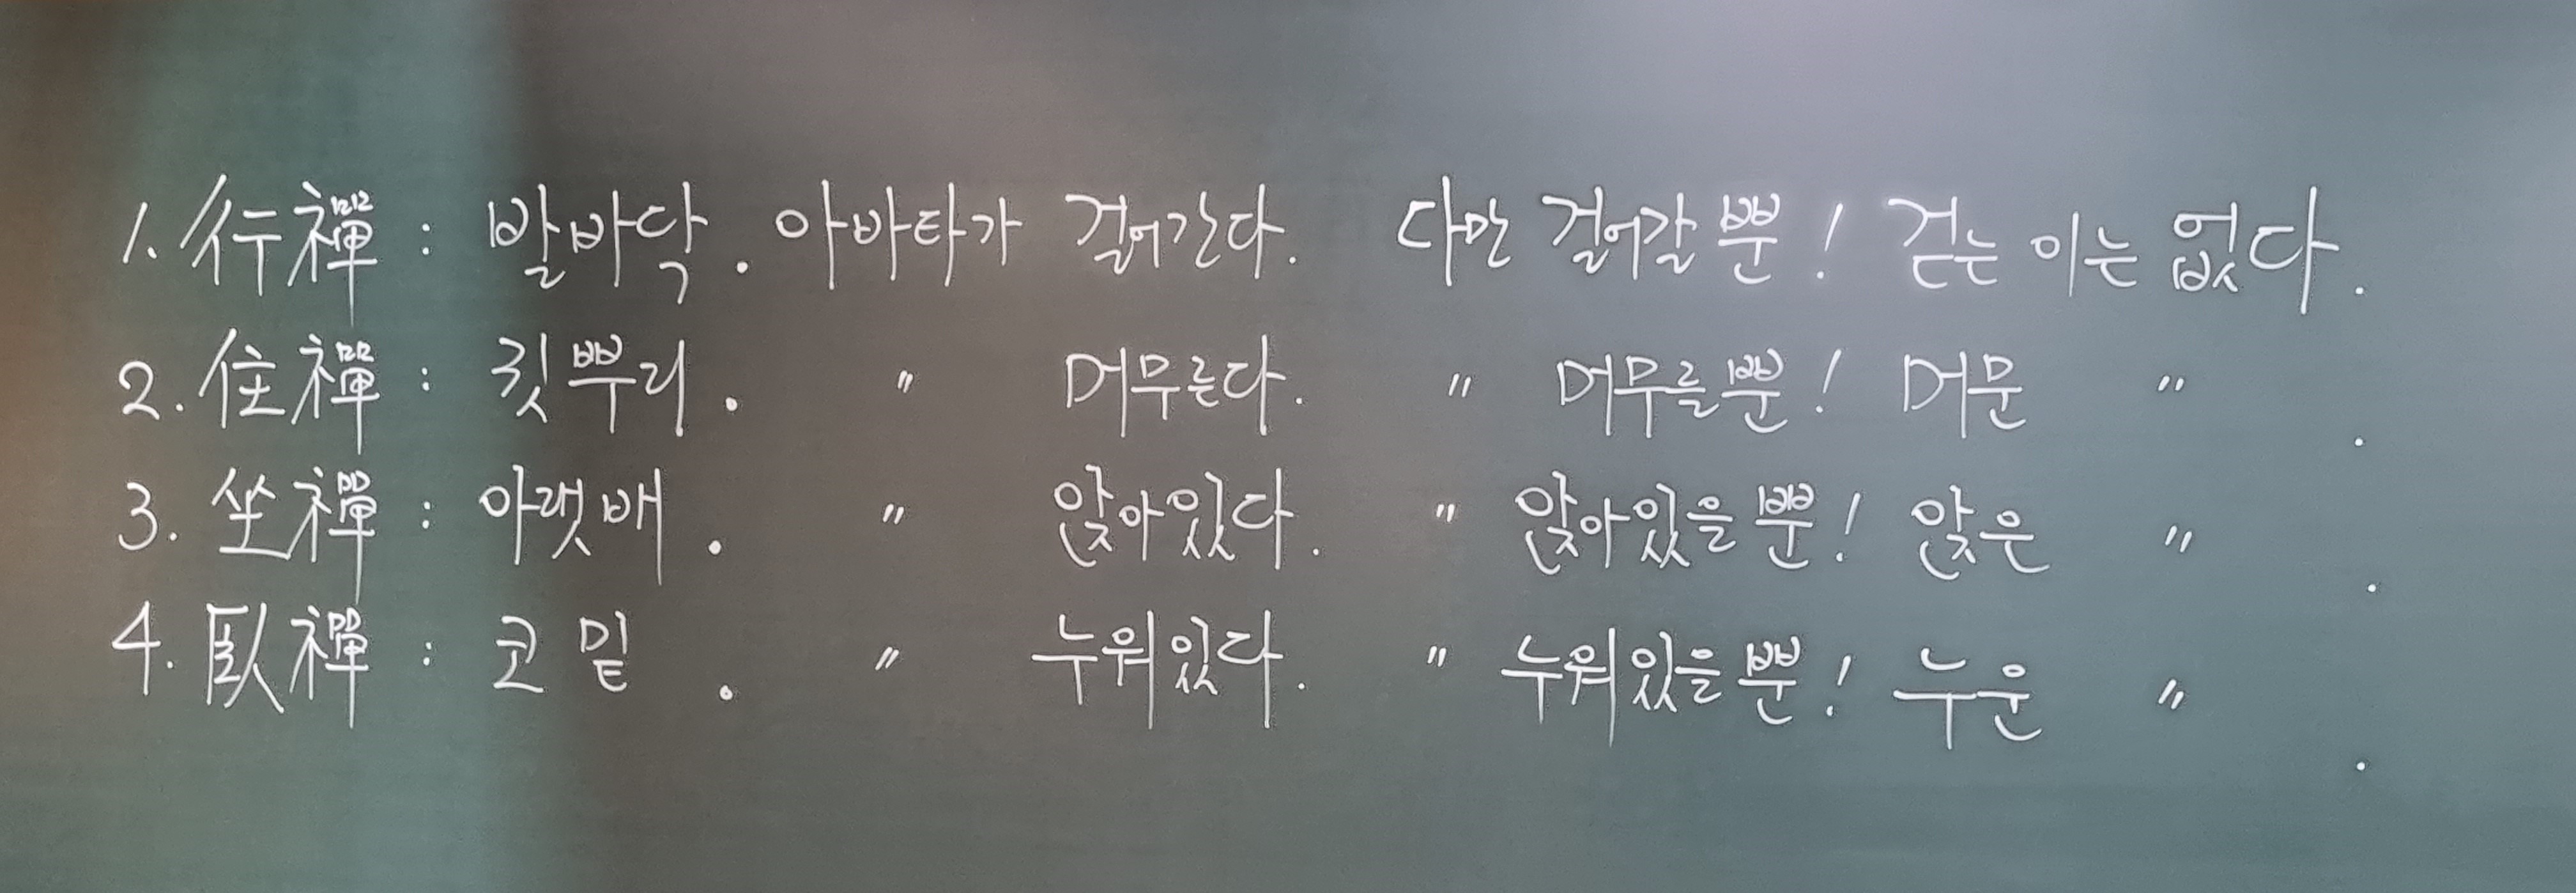 1. 行禪 : 발바닥. 아바타가 걸어간다. 다만 걸어갈 뿐! 걷는 이는 없다.
2. 住禪 : 콧뿌리. " 머무른다. " 머무를뿐! 머문 " .
3. 坐禪 : 아랫배. " 앉아있다. " 앉아있을 뿐! 앉은 " .
4. 臥禪 : 코 밑. " 누워있다. " 누워있을 뿐! 누운 " .